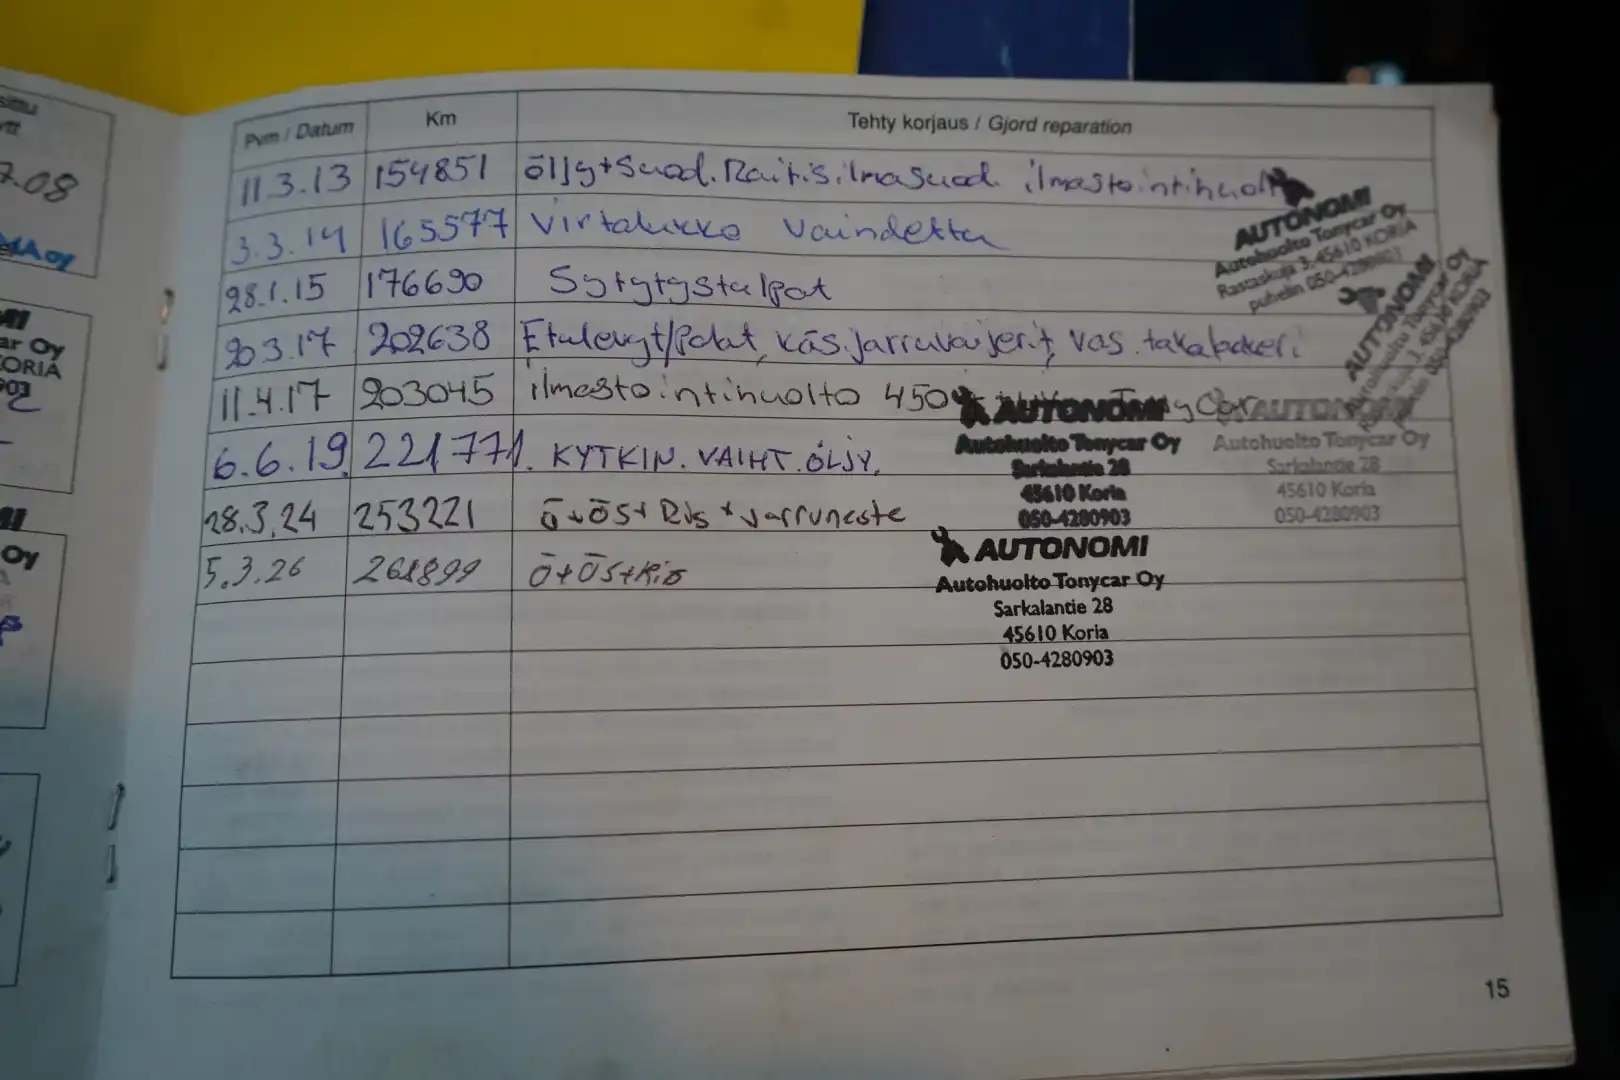 7.08
ar Oy
KORIA
903
Oy
Pvm / Datum Km Tehty korjaus / Gjord reparation
11.3.13 154851 öljy+Suod. Raitis.ilmasuod. ilmastointihuolt
3.3.14 165577 Virtalukko Vaindettu
28.1.15 176690 Sytytystulpat
20.3.17 202638 Etulevyt/Palat, käs.jarruvaijerit, vas. takalaakeri
11.4.17 203045 ilmastointihuolto 450
6.6.19. 221771. KYTKIN. VAIHT. ÖLJY.
28.3.24 253221 ö+ös+ Ris + Jarruneste
5.3.26 268899 Ö+ÖS+Ris
AUTONOMI
Autohuolto Tonycar Oy
Rastaskuja 3, 45610 KORIA
puhelin 050-4280903
AUTONOMI
Autohuolto Tonycar Oy
45610 KORIA
050-4280903
AUTONOMI
Autohuolto Tonycar Oy
Sarkalantie 28
45610 Koria
050-4280903
AUTONOMI
Autohuolto Tonycar Oy
Sarkalantie 28
45610 Koria
050-4280903
AUTONOMI
Autohuolto Tonycar Oy
Sarkalantie 28
45610 Koria
050-4280903
15